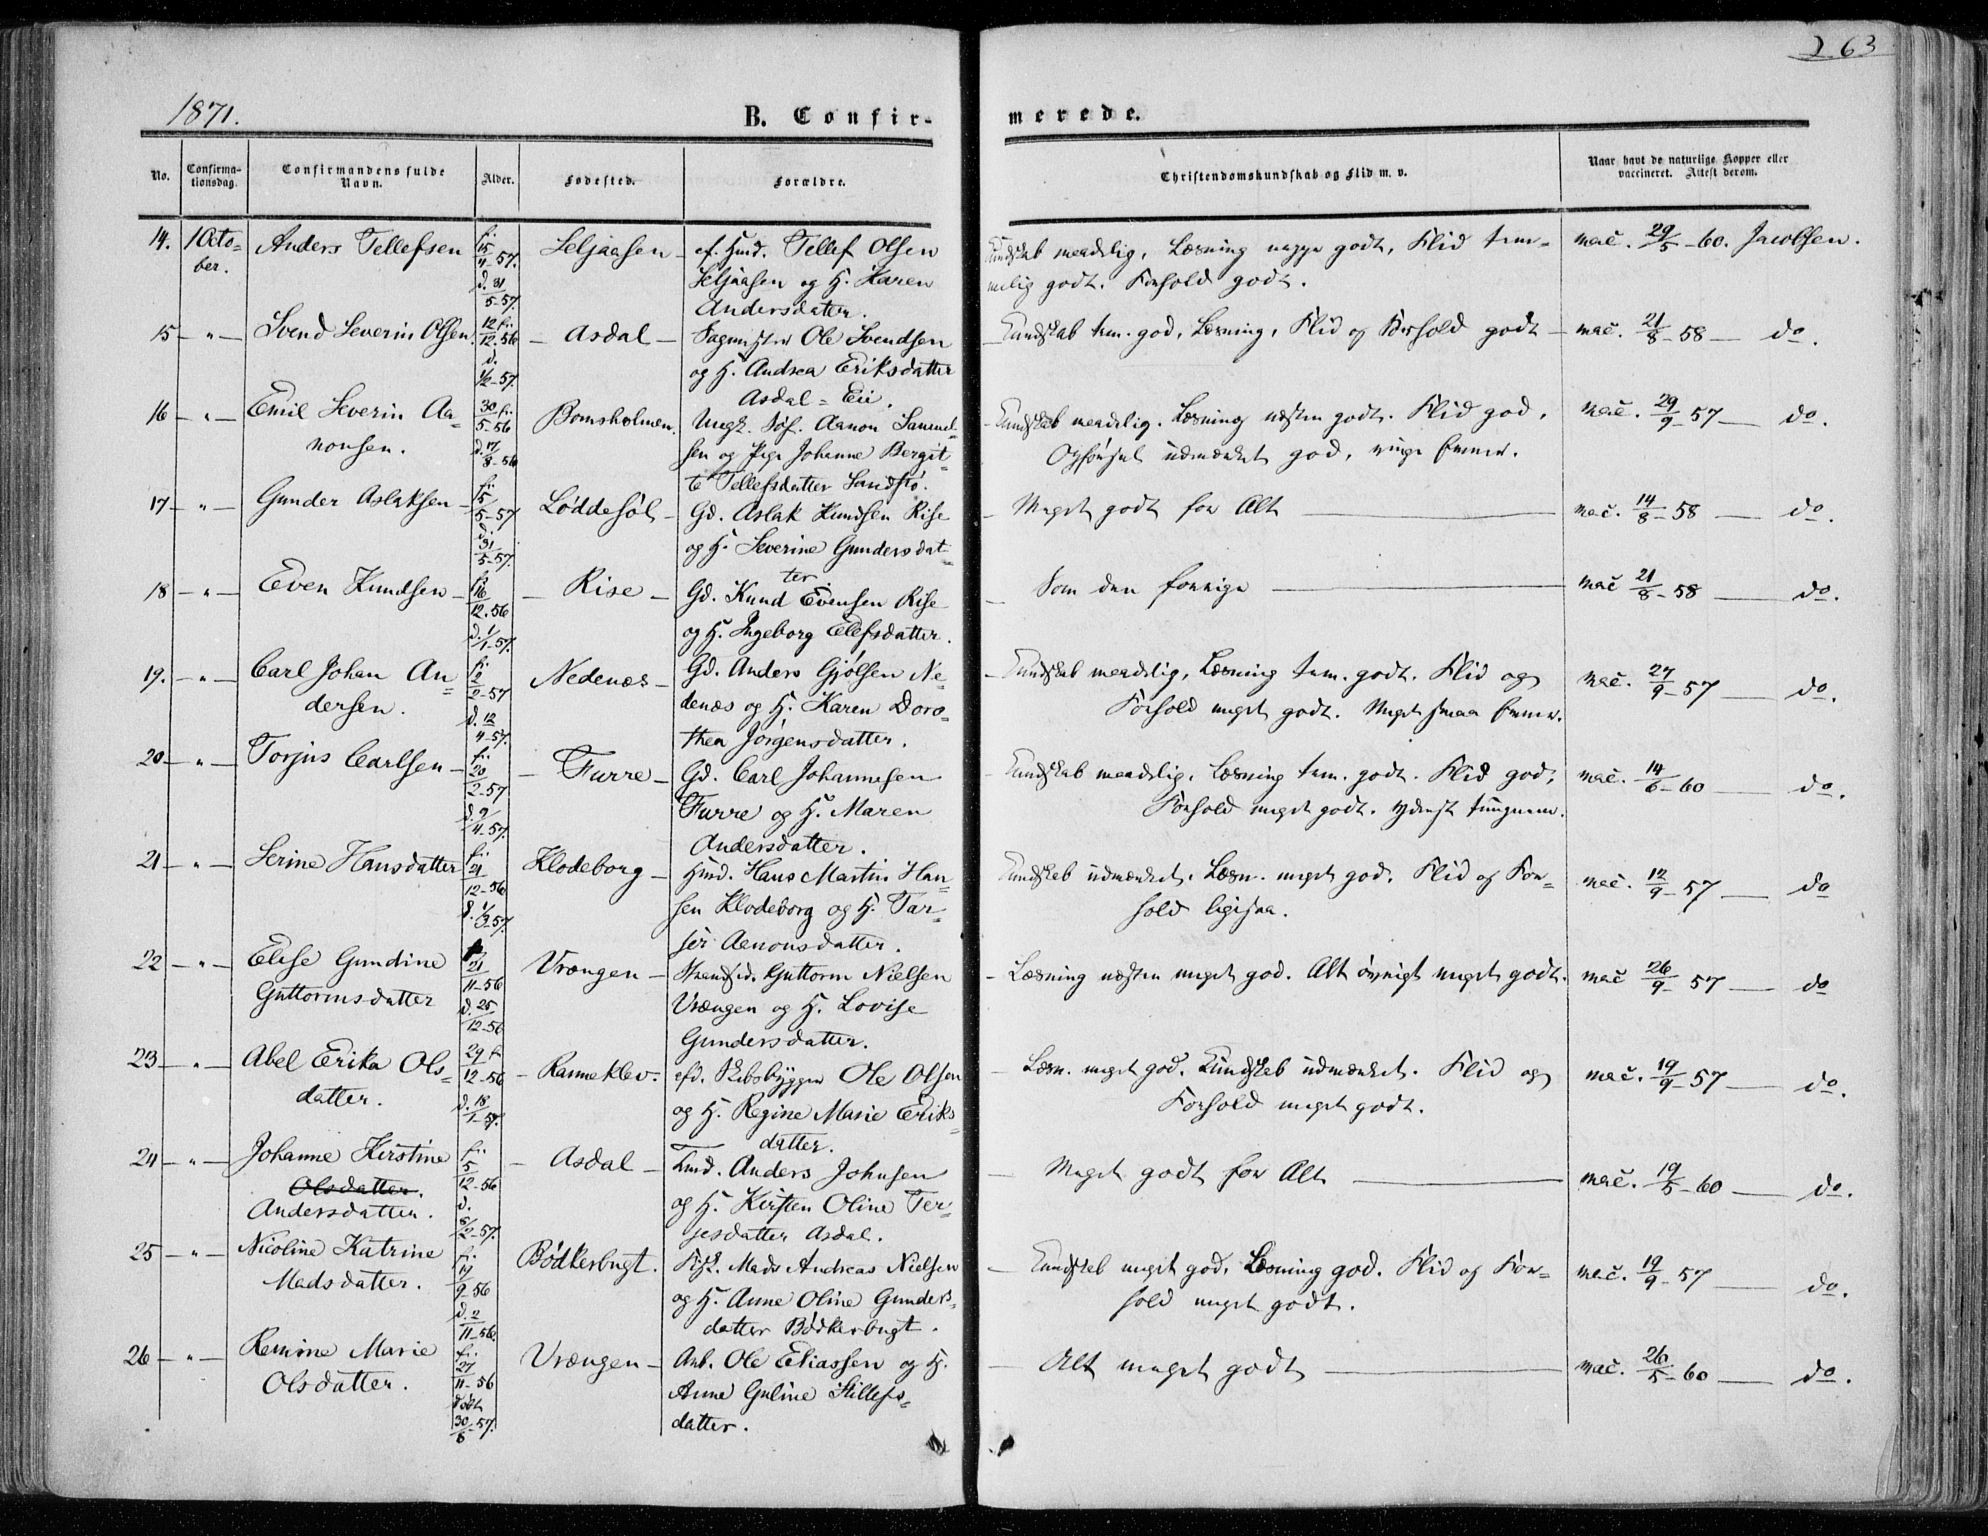 263
1871.
B. Confir-
merede.
No.
Confirma-
tionsdag.
Confirmandens fulde
Navn.
Alder.
Fødested.
Forældre.
Christendomskundskab og Flid m. v.
Naar havt de naturlige Kopper eller
vaccineret. Attest derom.
14. 1 Octo- Anders Tellefsen f. 15/4-57. Seljaasen - ef. Hmd. Tellef Olsen Kundskab maadelig, Læsning neppe godt, Flid tem- vac. 29/5-60. Jacobsen.
ber. d. 31/5-57 Seljaasen og H. Karen melig godt. Forhold godt.
Andersdatter.
15 - " - Svend Severin Olsen. 12/12-56 f. - Asdal - Ole Svendsen Kundskab tem. god, Læsning, Flid og Forhold godt - vac. 21/8-58 - do.
d. 1/2-57. og H. Andrea Eriksdatter
Asdal-Eie.
16 - " - Emil Severin Aa- 30/5-56 f. Bomsholmen. Ungk. Søf. Aanon Sammel- Kundskab maadelig. Læsning næsten godt. Flid god, vac. 29/9-57 - do.
nonsen. d. 17/8-56 sen og Pige Johanne Bergit- Opførsel udmærket god, ringe Evner.
te Tellefsdatter Sandstø.
17 - " - Gunder Aslaksen - f. 15/5-57 Løddesøl - Gd. Aslak Knudsen Rise - Meget godt for Alt - vac. 14/8-58 - do.
d. 31/5-57. og H. Severine Gundersdat-
ter.
18 - " - Even Knudsen - f. 16/12-56 - Rise - Gd. Knud Evensen Rise - Som den forrige - vac 21/8-58 - do.
d. 1/1-57. og H. Ingeborg Elefsdatter.
19. - " - Carl Johan An- f. 2/2-57 Nedenæs - Gd. Anders Gjølsen Ne- - Kundskab maadelig, Læsning tem. godt. Flid og vac. 27/9-57 - do.
dersen. d. 12/4-57. denæs og H. Karen Doro- Forhold meget godt. Meget smaa Evner.
thea Jørgensdatter.
20 - " - Torjus Carlsen - f. 20/2-57 - Furre - Gd. Carl Johannesen - Kundskab maadelig, Læsning tem. godt. Flid god, vac. 14/6-60 - do.
d. 9/4-57. Furre og H. Maren Forhold meget godt. yderst tungnem.
Andersdatter.
21 - " - Serine Hansdatter f. 21/12-56 Klodeborg - Hmd. Hans Martin Han- Kundskab udmærket. Læsn. meget god. Flid og For- vac. 12/9-57 - do
d. 1/3-57. sen Klodeborg og H. Tar- hold ligesaa.
Aanonsdatter.
22 - " - Elise Gundine 21/11-56 Vrængen - Strandsid. Guttorm Nielsen - Læsning næsten meget god. Alt øvrigt meget godt. vac 26/9-57 - do
Guttormsdatter d. 25/12-56 Vrængen og H. Lovise
Gundersdatter.
23 - " - Abel Erika Ols- 29/12-56 f. - Ranneklev: efd. Skibsbygger Ole Olsen - Læsn. meget god. Kundskab udmærket. Flid og vac. 19/9-57 - do.
datter. d. 18/1-57. og H. Regine Marie Eriks- Forhold meget godt.
datter.
24 - " - Johanne Kirstine f. 5/12-56 - Asdal - Hmd. Anders Johnsen - Meget godt for Alt - vac. 19/5-60 - do.
Olsdatter. d. og H. Kirsten Oline Ter-
Andersdatter. 8/2-57. jesdatter Asdal.
25 - " - Nicoline Katrine f. 19/9-56 Bødkerbugt. Fisk. Mads Andreas Nielsen - Kundskab meget god, Læsning god. Flid og For- vac. 19/9-57 - do.
Madsdatter. d. 2/11-56. og H. Anne Oline Gunders- hold meget godt.
datter Bødkerbugt.
26 - " - Remine Marie f. 27/11-56 Vrængen - Arb. Ole Eliassen og H. - Alt meget godt - vac. 26/5-60 - do.
Olsdatter. døbt 30/8-57. Anne Guline Stillefs-
datter.